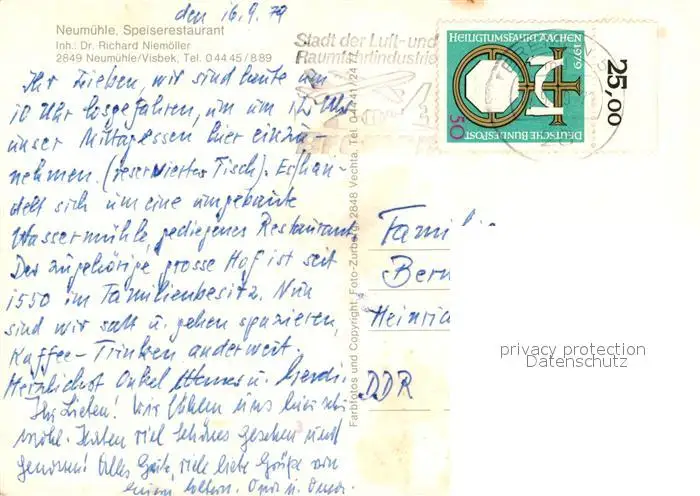 den 16.9.79
Neumühle, Speiserestaurant
Inh.: Dr. Richard Niemöller
2849 Neumühle/Visbek, Tel. 0 44 45 / 8 89
Ihr Lieben, wir sind heute um
10 Uhr losgefahren, um um 12 Uhr
unser Mittagessen hier einzu-
nehmen. (reserviertes Tisch). Es han-
delt sich um eine umgebaute
Wassermühle, gediegenes Restaurant.
Der zugehörige grosse Hof ist seit
1550 im Familienbesitz. Nun
sind wir satt u. gehen spazieren,
Kaffee-Trinken anderweit.
Herzlichst Onkel u.
Ihr Lieben! Wir fühlen uns hier sehr
wohl. Haben viel Schönes gesehen und
genossen! Alles Gute, viele liebe Grüße von
Farbfotos und Copyright: Foto-Zurborg, 2848 Vechta, Tel. 0 44 41 / 24 77
Stadt der Luft- und
Raumfahrtindustrie
HEILIGTUMSFAHRT AACHEN 1979
DEUTSCHE BUNDESPOST
50
25,00
Famili
Bern
Heinric
DDR
privacy protection
Datenschutz